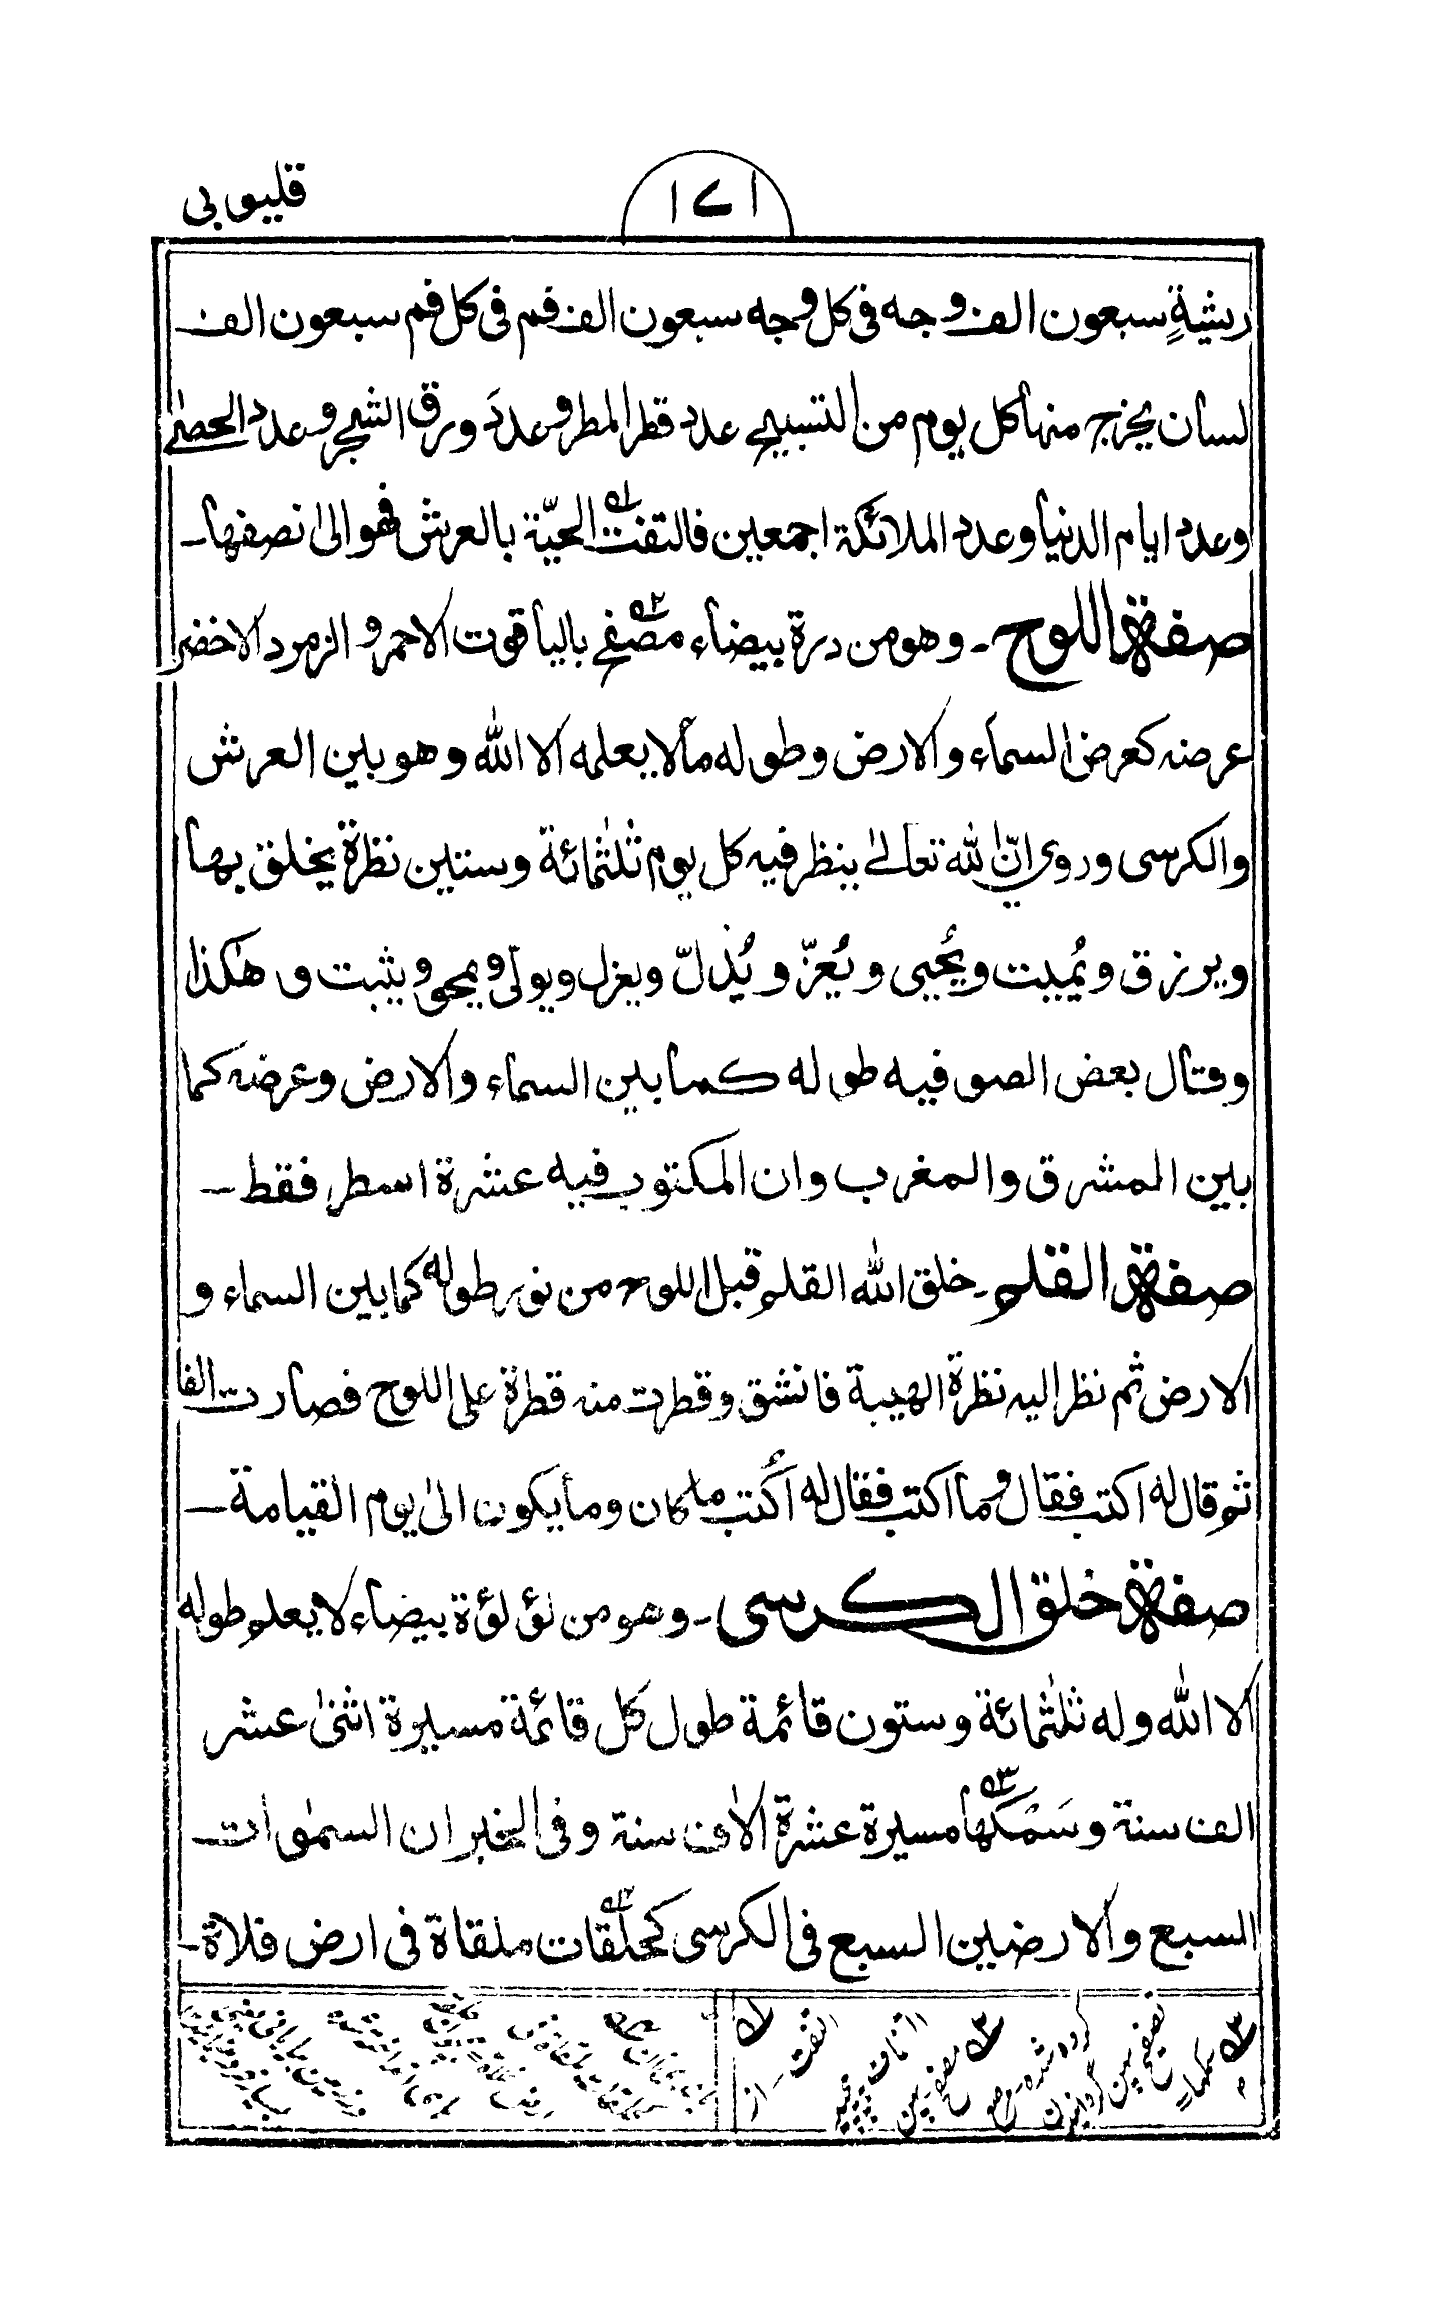 ۱۷۱
قليوبی
ريشةٍ سبعون الف وجه فى كل وجه سبعون الف فم فى كل فم سبعون الف
لسان يخرج منها كل يوم من التسبيح عدد قطر المطر وعددَ ورق الشجر وعدد الحصىٰ
وعدد ايام الدنيا وعدد الملائكة اجمعين فالتفت۱ الحيّة بالعرش فهو الىٰ نصفها۔
صفة اللوح۔ وهو من درة بيضاء مصفح۲ بالياقوت الاحمر والزمرد الاخضر
عرضه كعرض السماء والارض وطوله مالا يعلمه الا الله وهو بين العرش
والكرسى وروي انّ لله تعالىٰ ينظر فيه كل يوم ثلٰثمائة وستين نظرة يخلق بها
ويرزق ويُميت ويُحيى ويُعزّ ويُذلّ ويعزل ويولّى ويمحو ويثبت و هٰكذا
وقال بعض الصوفيه طوله كما بين السماء والارض وعرضه كما
بين المشرق والمغرب وان المكتوب فيه عشرة اسطر فقط۔
صفة القلم۔ خلق الله القلم قبل اللوح من نور طوله كما بين السماء و
الارض ثم نظر اليه نظرة الهيبة فانشق وقطرت منه قطرة على اللوح فصارت الفا
ثم قال له اكتب فقال وما اكتب فقال له اُكتب ما كان وما يكون الىٰ يوم القيامة۔
صفة خلق الكرسى۔ وهو من لؤلؤة بيضاء لا يعلم طوله
الا الله وله ثلٰثمائة وستون قائمة طول كل قائمة مسيرة اثنىٰ عشر
الف سنة وسَمْكها۳ مسيرة عشرة اٰلاف سنة وفى الخبر ان السمٰوات
السبع والارضين السبع فى الكرسى كحلقات۴ ملقاة فى ارض فلاة۔